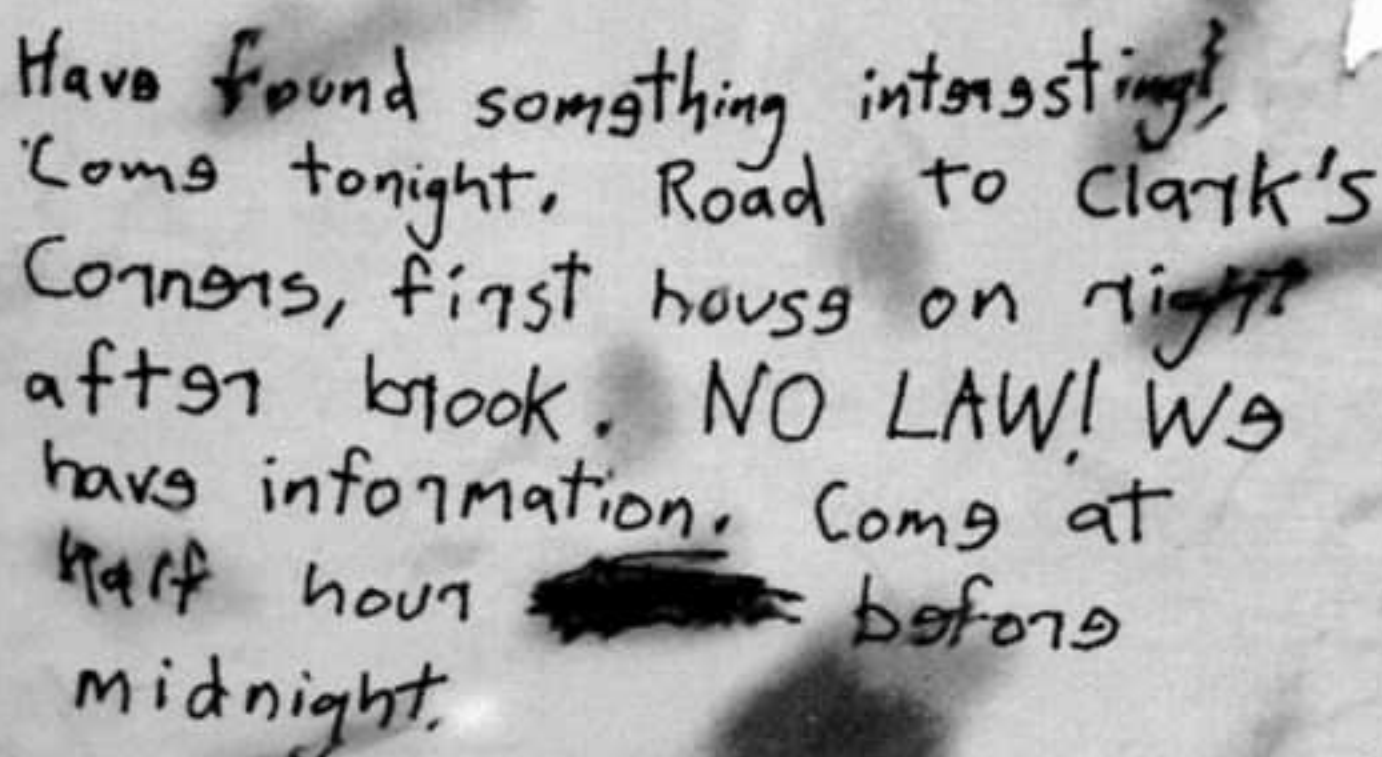 Have found something interesting!
Come tonight. Road to Clark's
Corners, first house on right
after brook. NO LAW! We
have information. Come at
Half hour before
midnight.